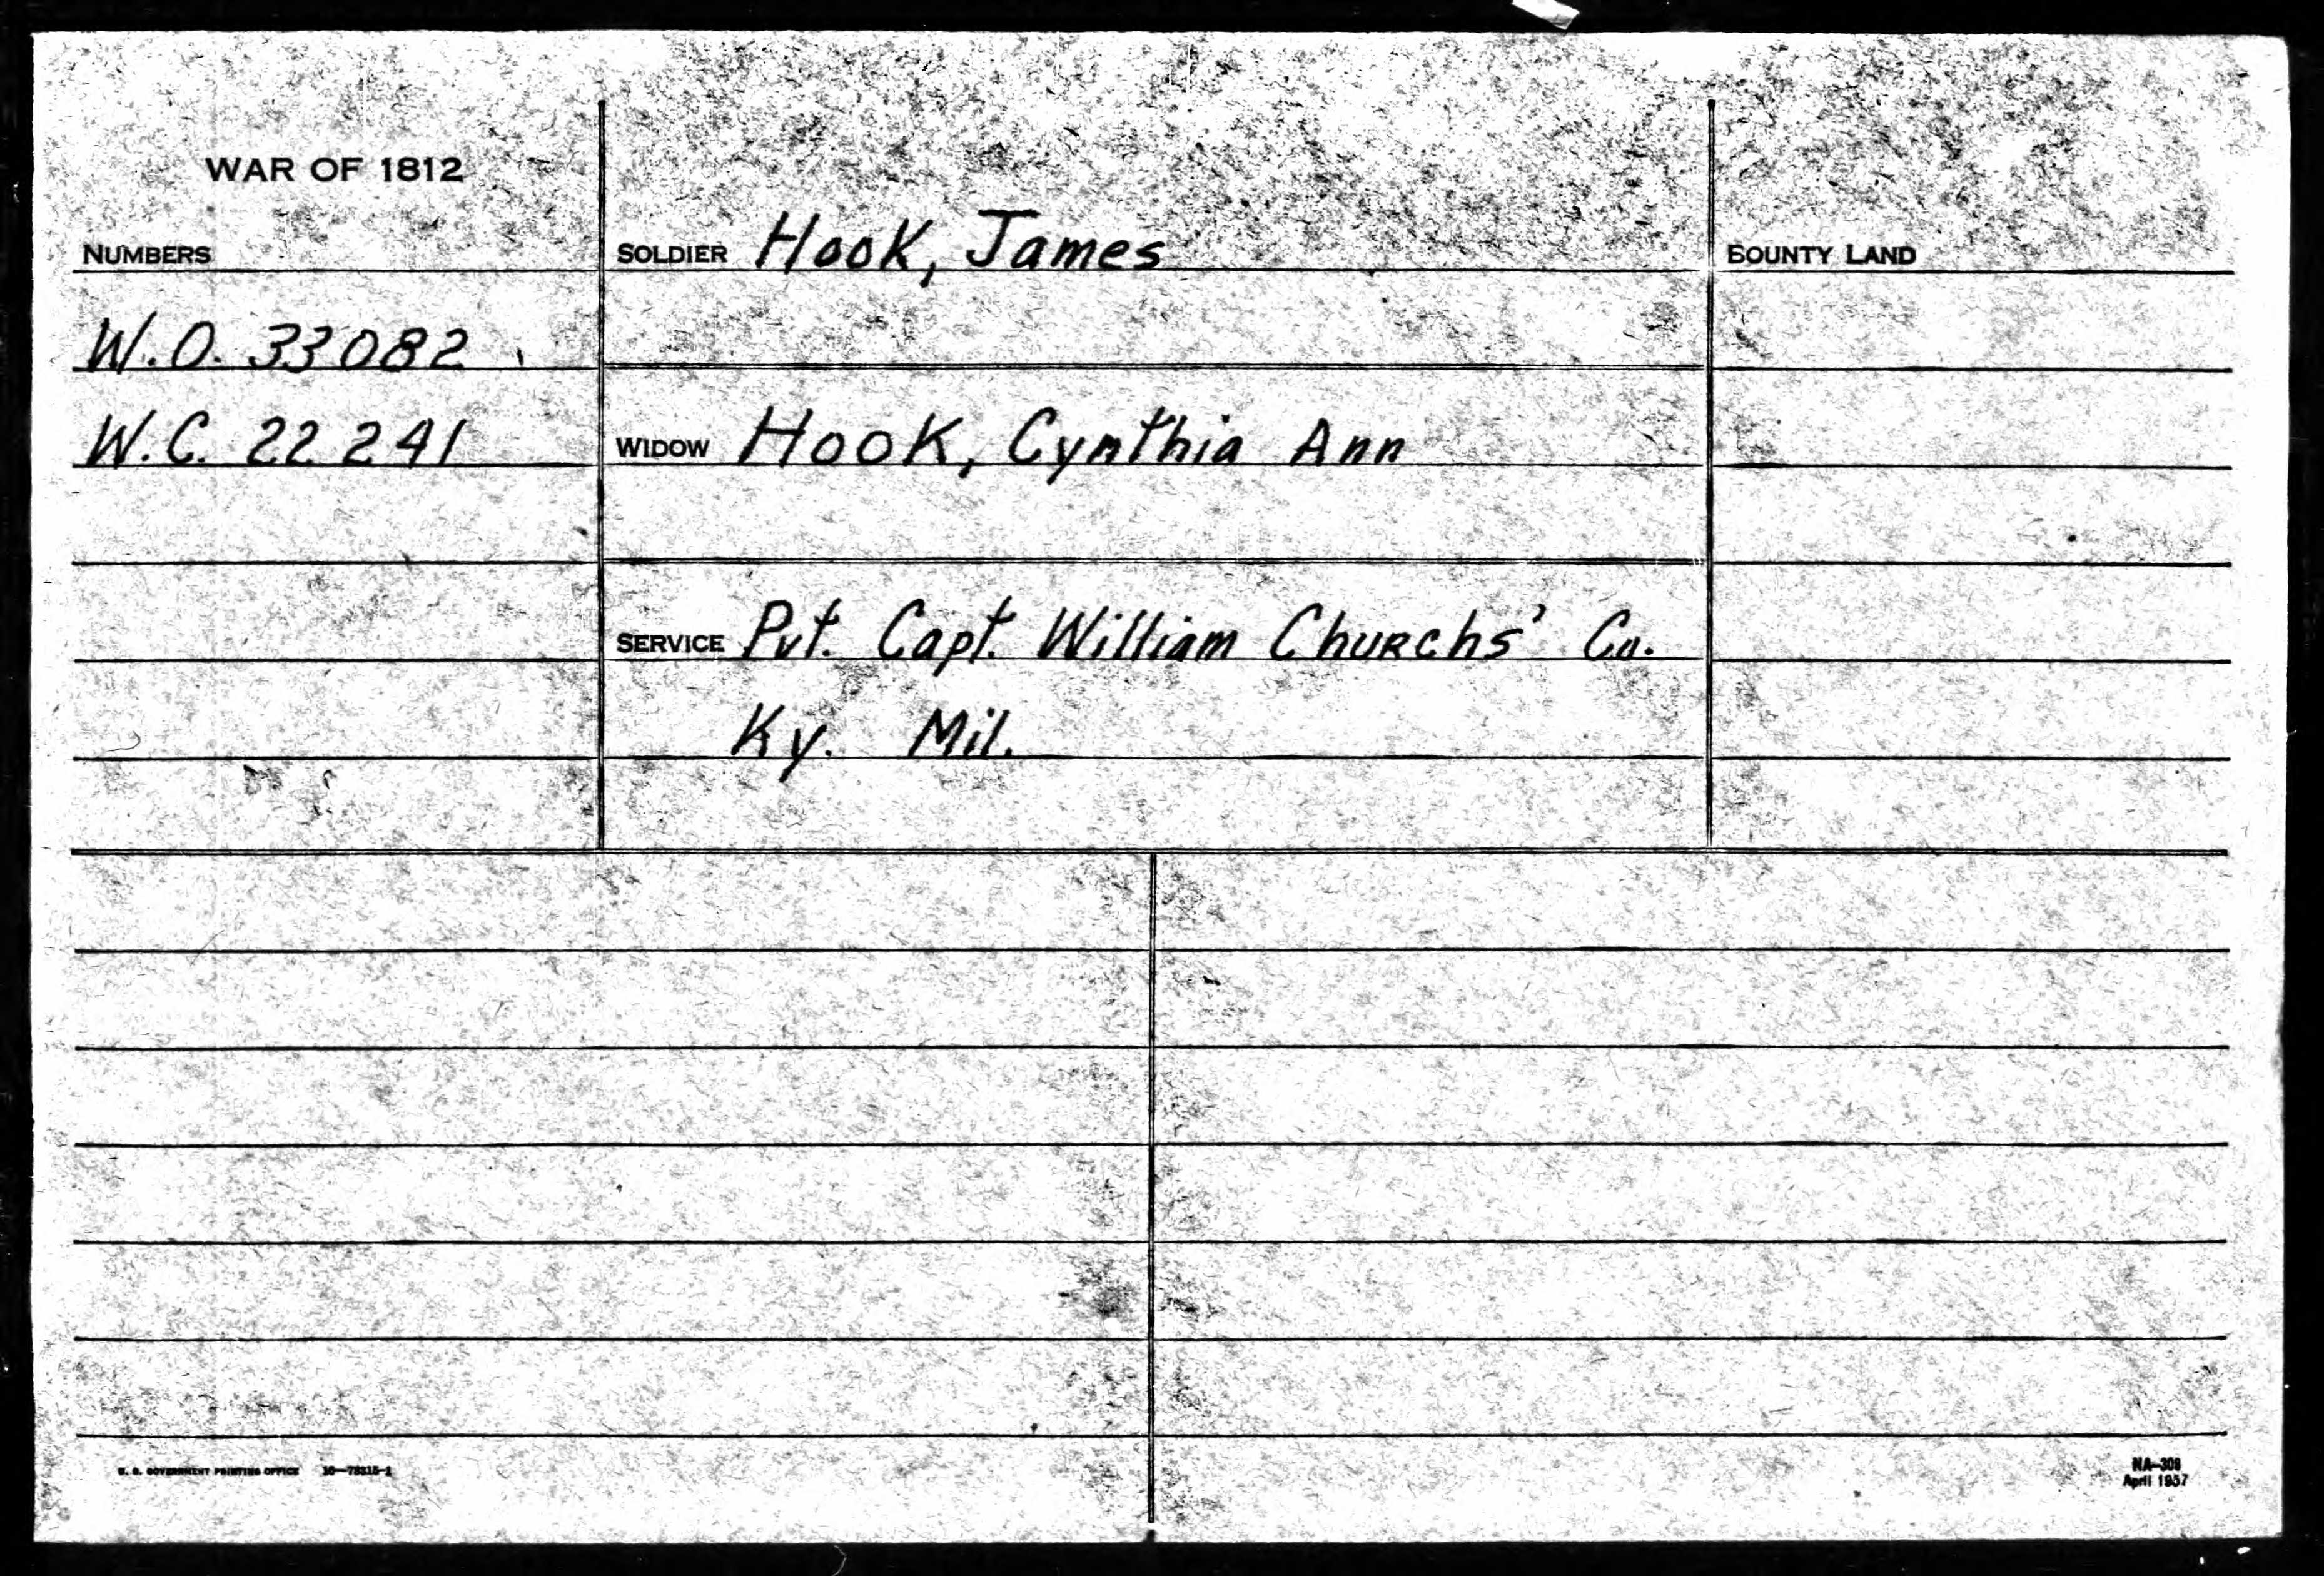 WAR OF 1812
NUMBERS
W.O. 33082
W.C. 22 241
SOLDIER Hook, James
WIDOW Hook, Cynthia Ann
SERVICE Pvt. Capt. William Churchs' Co.
Ky. Mil.
BOUNTY LAND
U. S. GOVERNMENT PRINTING OFFICE 16—73315-1
NA-308
April 1957